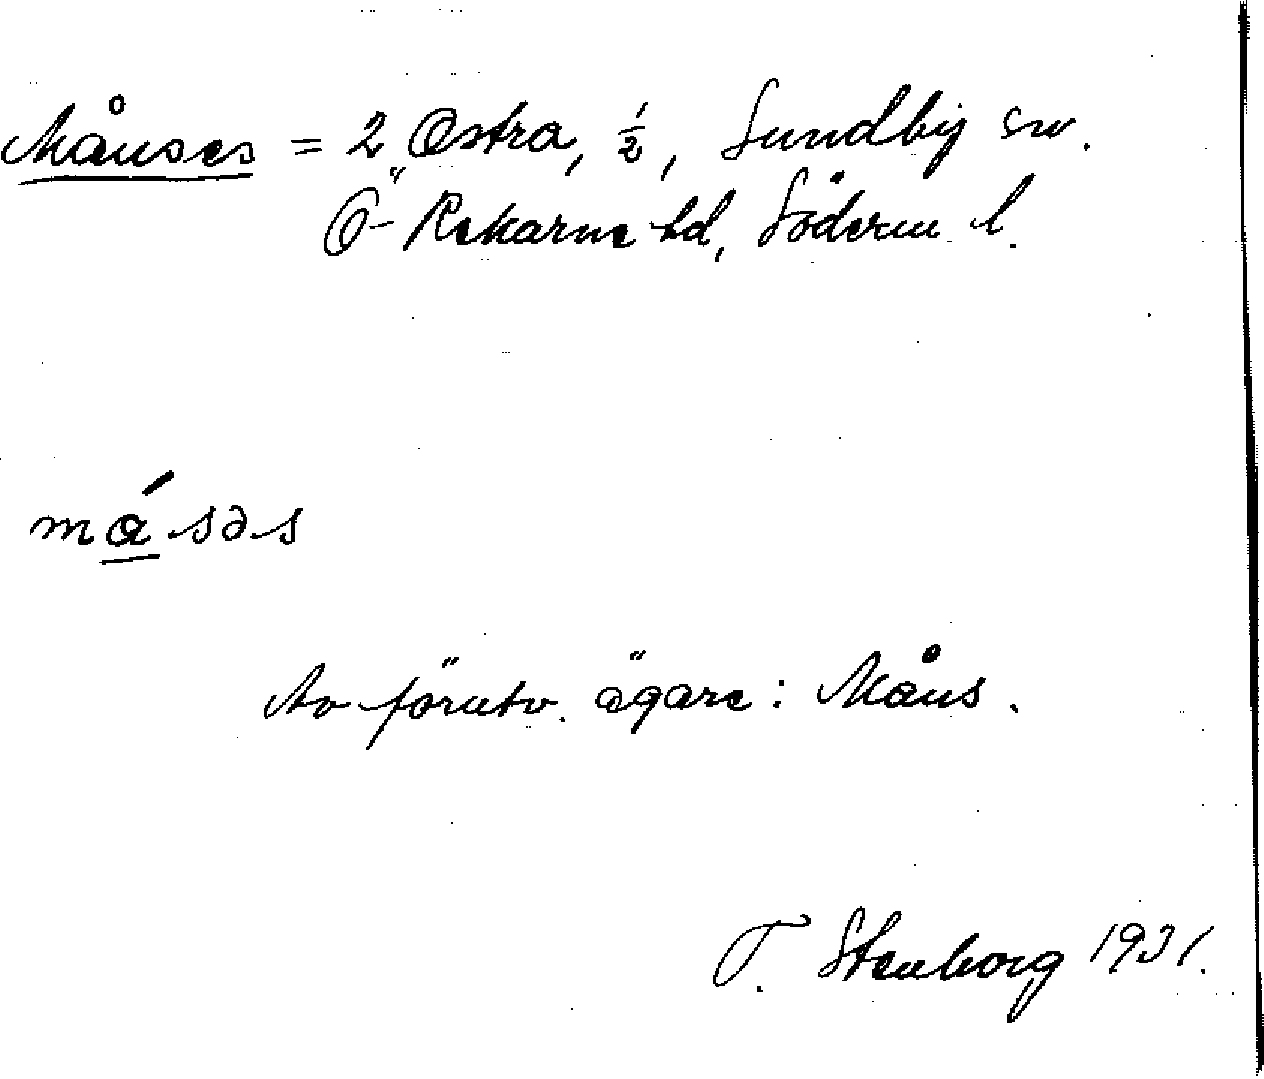 Månses = 2 Östra, ½, Sundby sn.
Ö- Rekarne hd, Söderm l.
má̲səs
Av förutv. ägare: Måns.
T. Stenborg 1931.